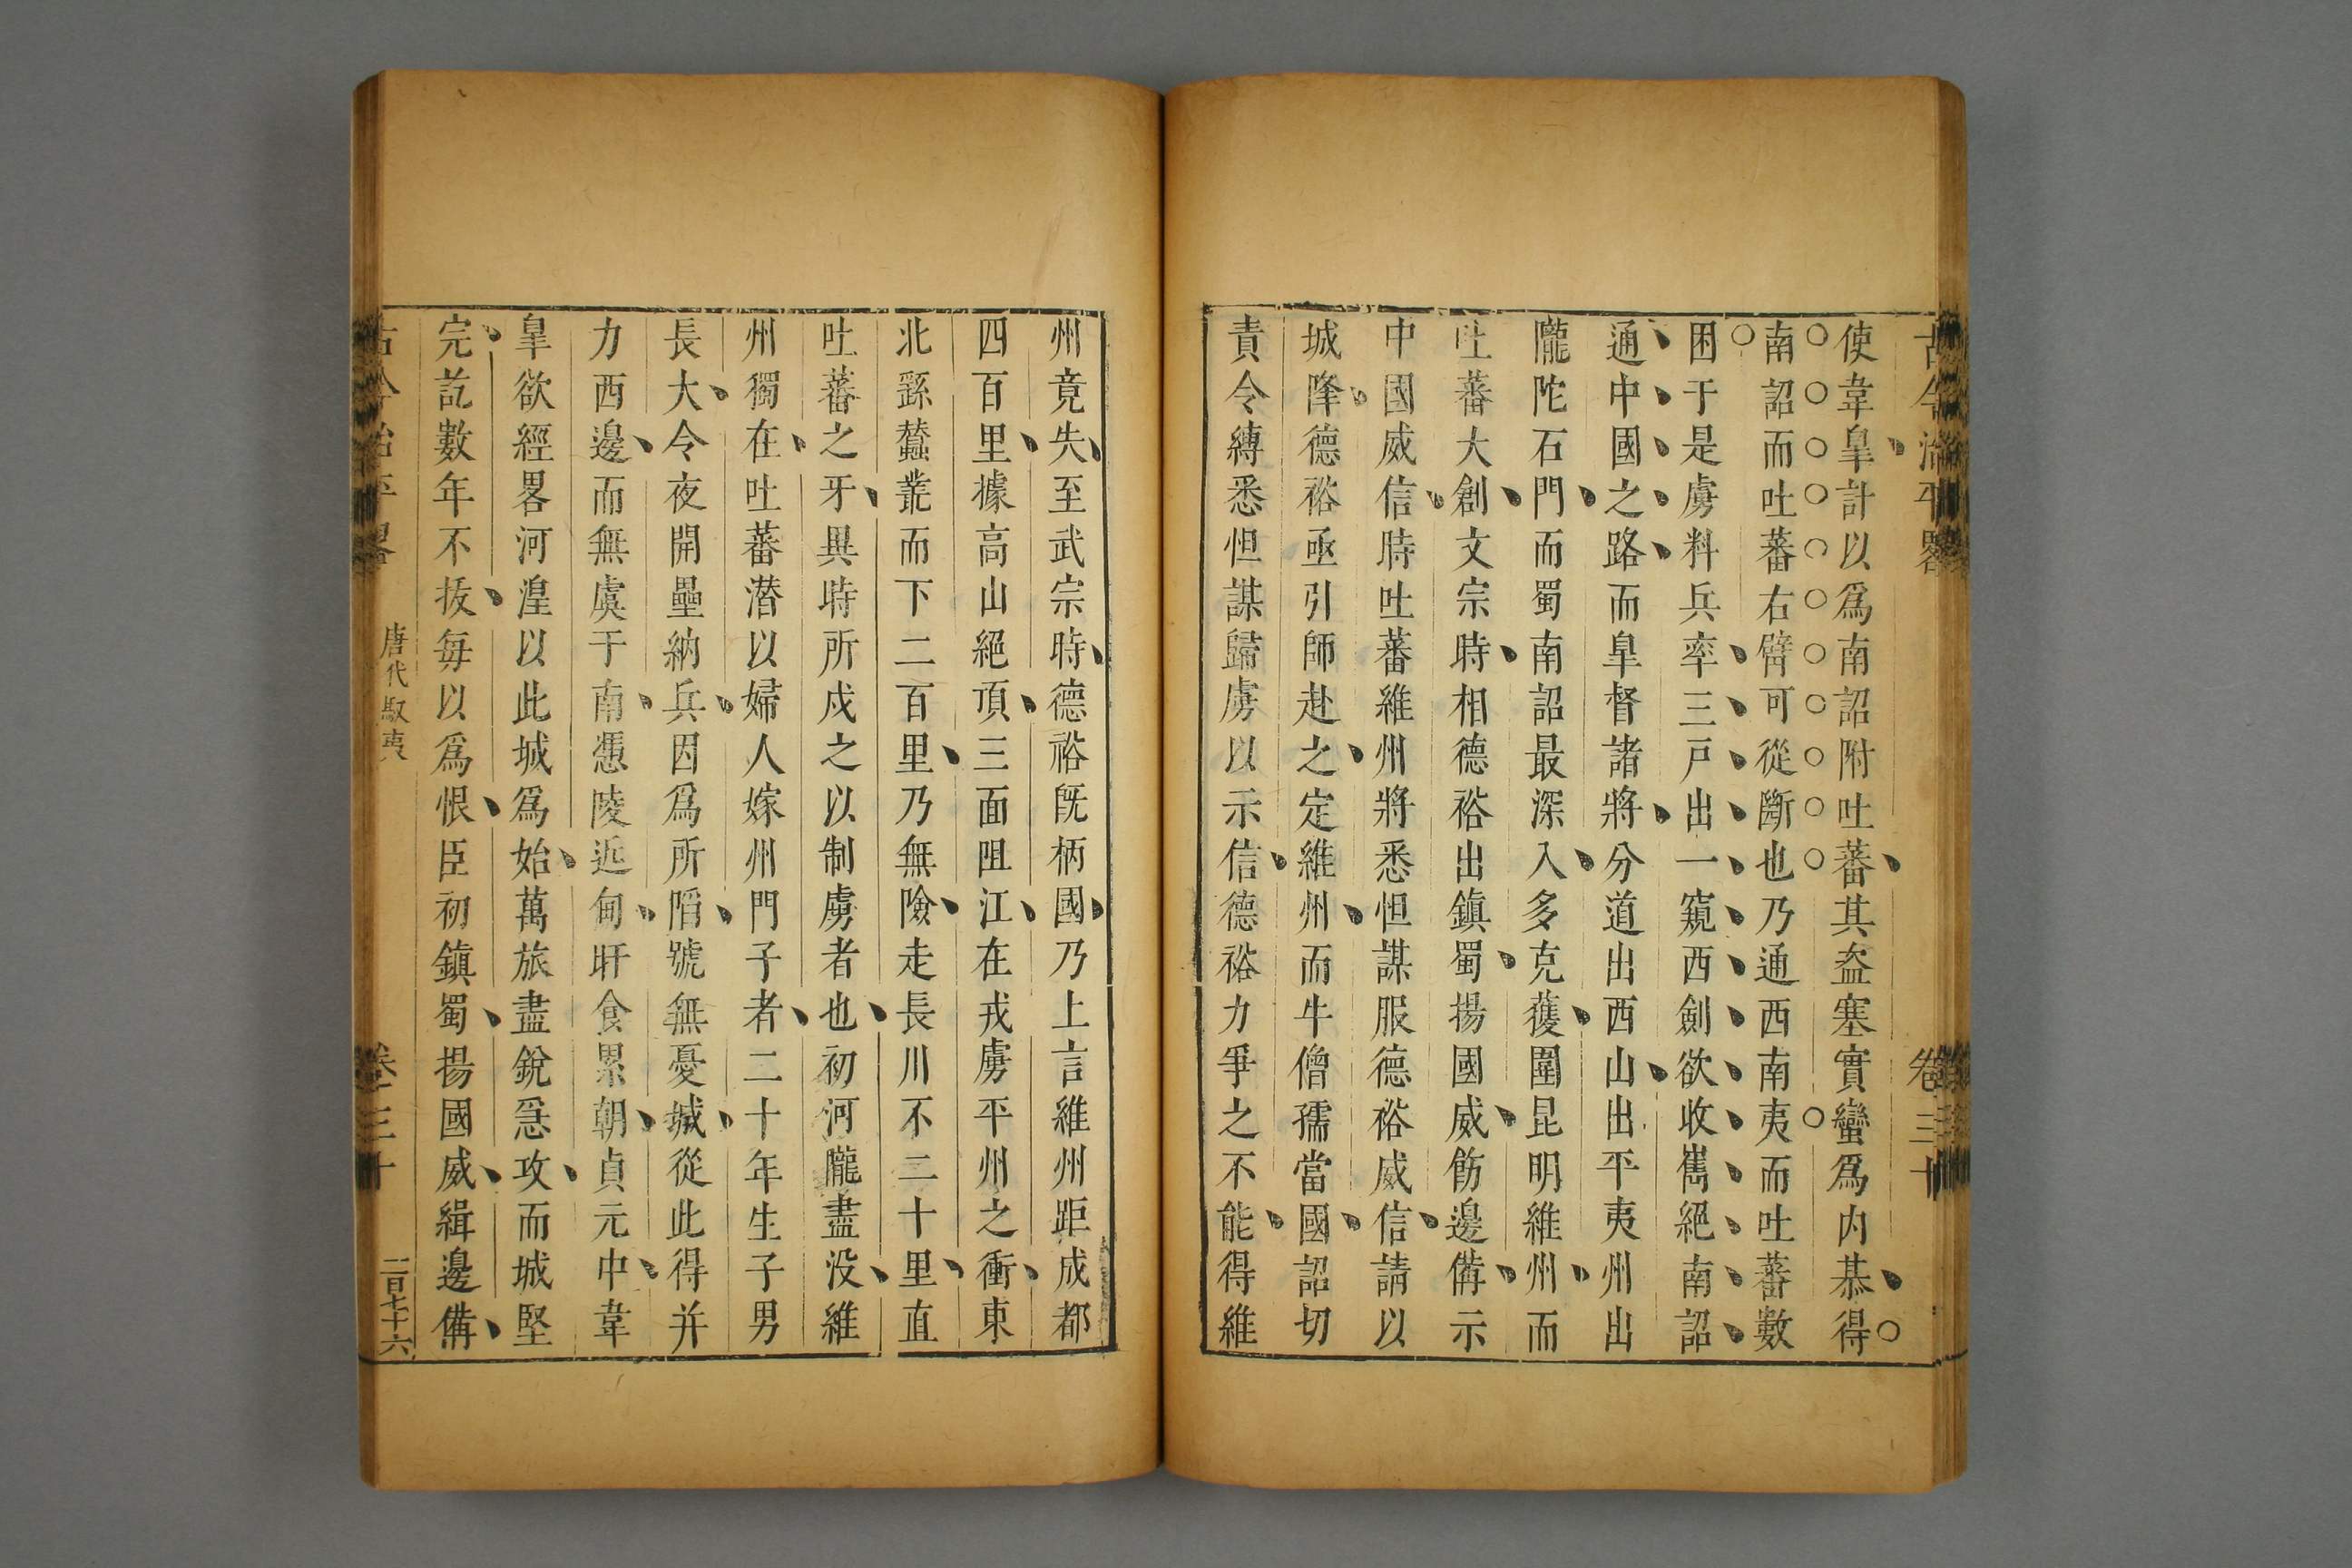 古今治平畧 卷三十
使韋臯計以爲南詔附吐蕃其盗塞實蠻爲内恭得
南詔而吐蕃右臂可從斷也乃通西南夷而吐蕃數
困于是虜料兵率三戸出一窺西劍欲收嶲絕南詔
通中國之路而臯督諸將分道出西山出平夷州出
隴陀石門而蜀南詔最深入多克蒦圍昆明維州而
吐蕃大創文宗時相德裕出鎮蜀揚國威飭邊備示
中國威信時吐蕃維州將悉怛謀服德裕威信請以
城降德裕亟引師赴之定維州而牛僧孺當國詔切
責令縛悉怛謀歸虜以示信德裕力爭之不能得維
州竟失至武宗時德裕旣柄國乃上言維州距成都
四百里據高山絕頂三面阻江在戎虜平州之衝東
北繇蠶叢而下二百里乃無險走長川不二十里直
吐蕃之牙異時所戍之以制虜者也初河隴盡没維
州獨在吐蕃潜以婦人嫁州門子者二十年生子男
長大令夜開壘納兵因爲所䧟號無憂城從此得并
力西邊而無虞于南憑陵近甸旰食累朝貞元中韋
臯欲經畧河湟以此城爲始萬旅盡銳急攻而城堅
完訖數年不拔每以爲恨臣初鎮蜀揚國威緝邊備
古今治平畧 唐代馭夷 卷三十 二百七十六